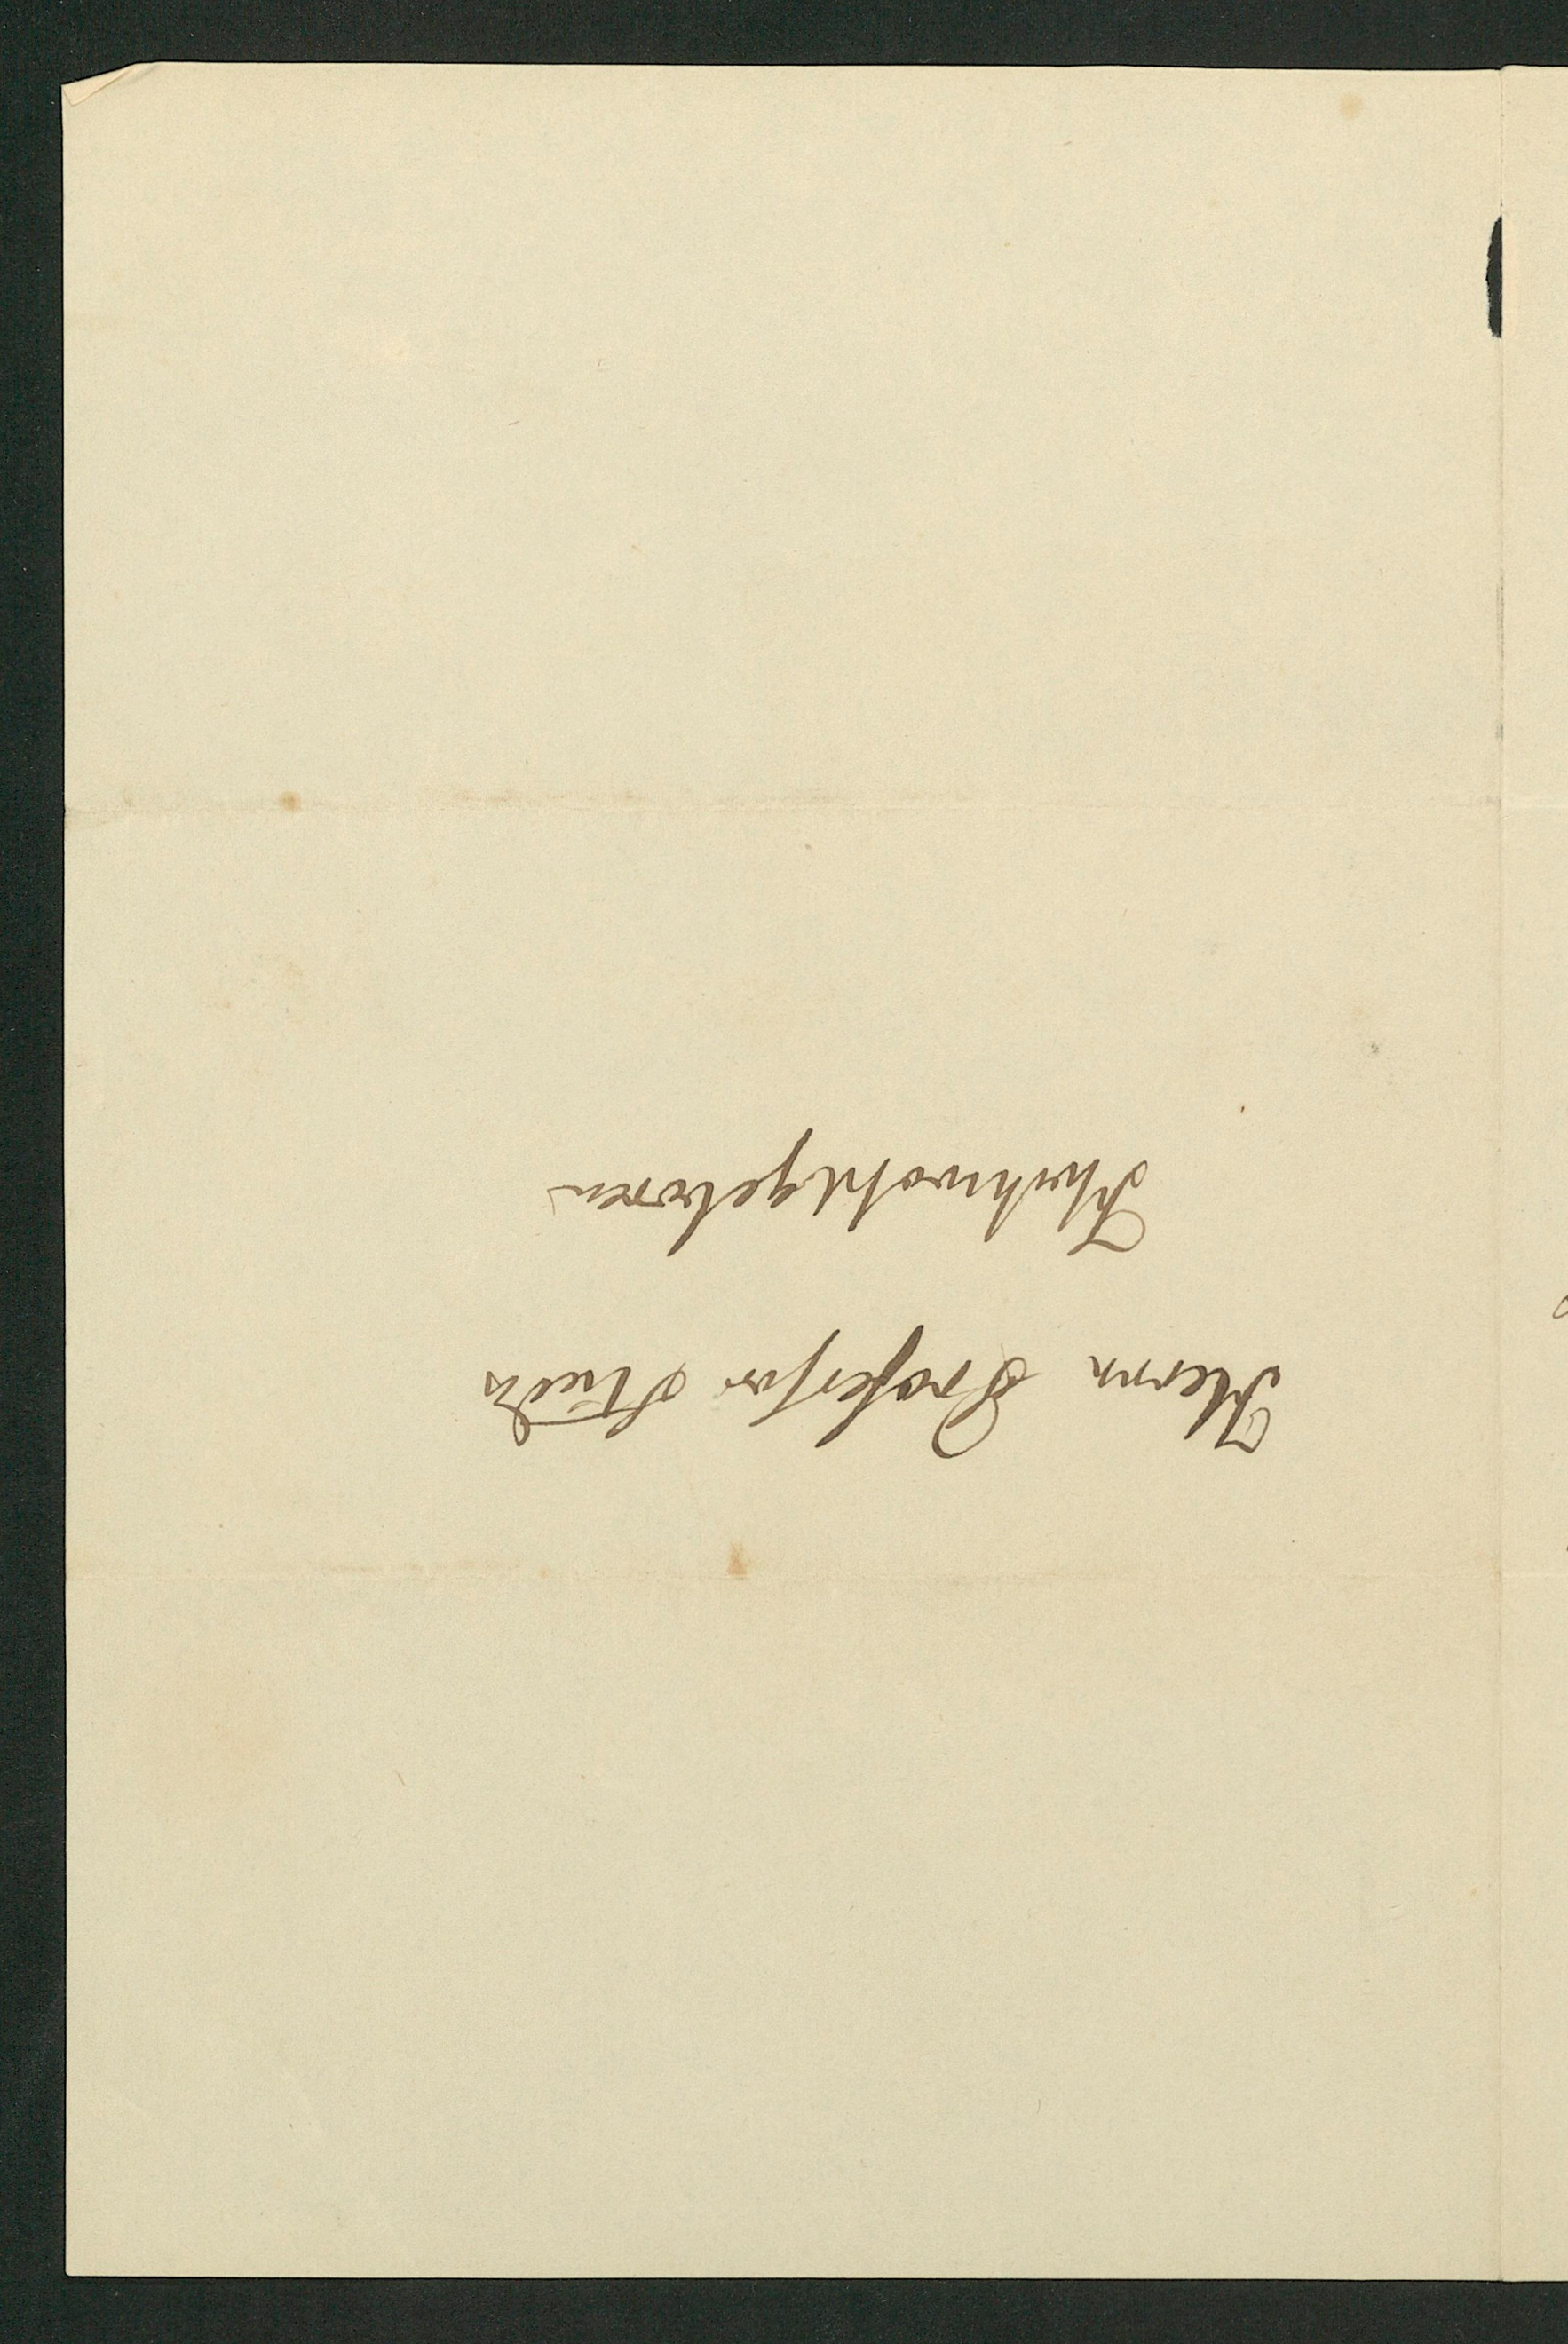 Herrn Professor Studer
Hochwohlgeboren